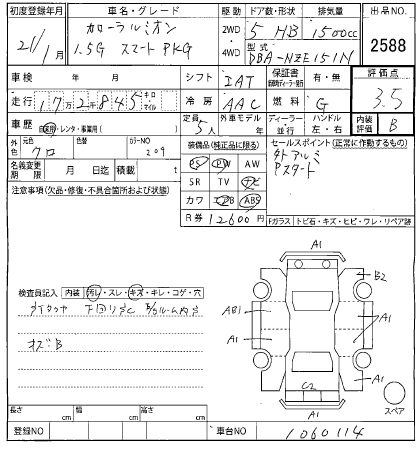 初度登録年月 車名・グレード 駆動 ドア数・形状 排気量 出品NO.
21/1月 カローラルミオン 2WD・4WD 5 HB 1500cc 2588
1.5G スマートPKG 型式 DBA-NZE151N
車検 年 月 シフト IAT 保証書 有・無 評価点
走行 172845 キロ マイル 冷房 AAC 燃料 G 3.5
車歴 自家用・レンタ・事業用( ) 定員 5人 外車モデル 年 ディーラー 並行 ハンドル 左・右 内装評価 B
外色 元色 クロ 色替 カラーNO 209
装備品(純正品に限る) セールスポイント(正常に作動するもの)
PS PW AW 外アルミ
名義変更期限 月 日迄 積載 t SR TV ナビ Pスタート
注意事項(欠品・修復・不具合箇所および状態) カワ エアB ABS
R券 12600円 Fガラス トビ石・キズ・ヒビ・ワレ・リペア跡
A1
B2
検査員記入 内装 汚レ・スレ・キズ・キレ・コゲ・穴
AB1
A1 A1
キズB
C2
A1
A1
スペア
長さ cm 幅 cm 高さ cm
登録NO 車台NO 1060114